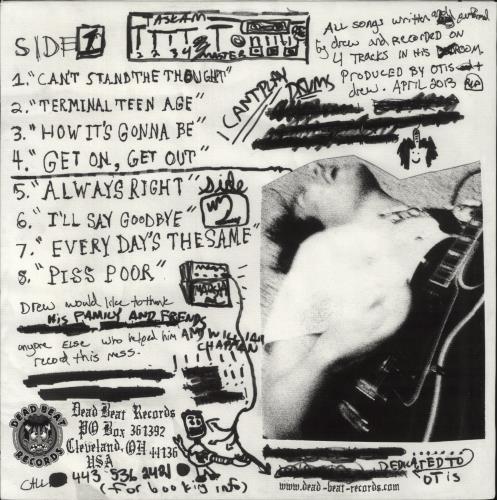 SIDE 1
1. "CAN'T STAND THE THOUGHT"
2. "TERMINAL TEEN AGE"
3. "HOW IT'S GONNA BE"
4. "GET ON, GET OUT"
side 2
5. "ALWAYS RIGHT"
6. "I'LL SAY GOODBYE"
7. "EVERY DAY'S THE SAME"
8. "PISS POOR"
TASKAM
1 2 3 4 MASTER
ALL SONGS written and
by drew and RECORDED ON
4 TRACKS IN HIS ROOM
PRODUCED BY OTIS +
drew. APRIL 2013
I CANT PLAY
DRUMS
Drew would like to thank
HIS FAMILY AND FRIENDS
anyone else who helped him
record this mess.
AMY WILLIAM
CHAPMAN
DEAD BEAT
RECORDS
Dead Beat Records
PO Box 361392
Cleveland, OH 44136
USA
CALL 443 536 2481
(for booking info)
DEDICATED TO
OTIS
www.dead-beat-records.com